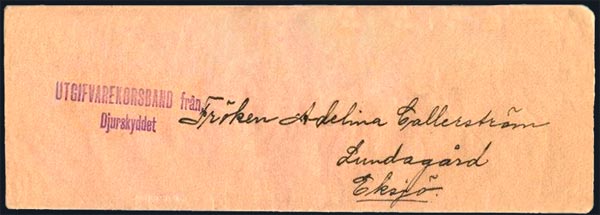 UTGIFVAREKORSBAND från
Djurskyddet
Fröken Adelina Callerström
Lundagård
Eksjö.